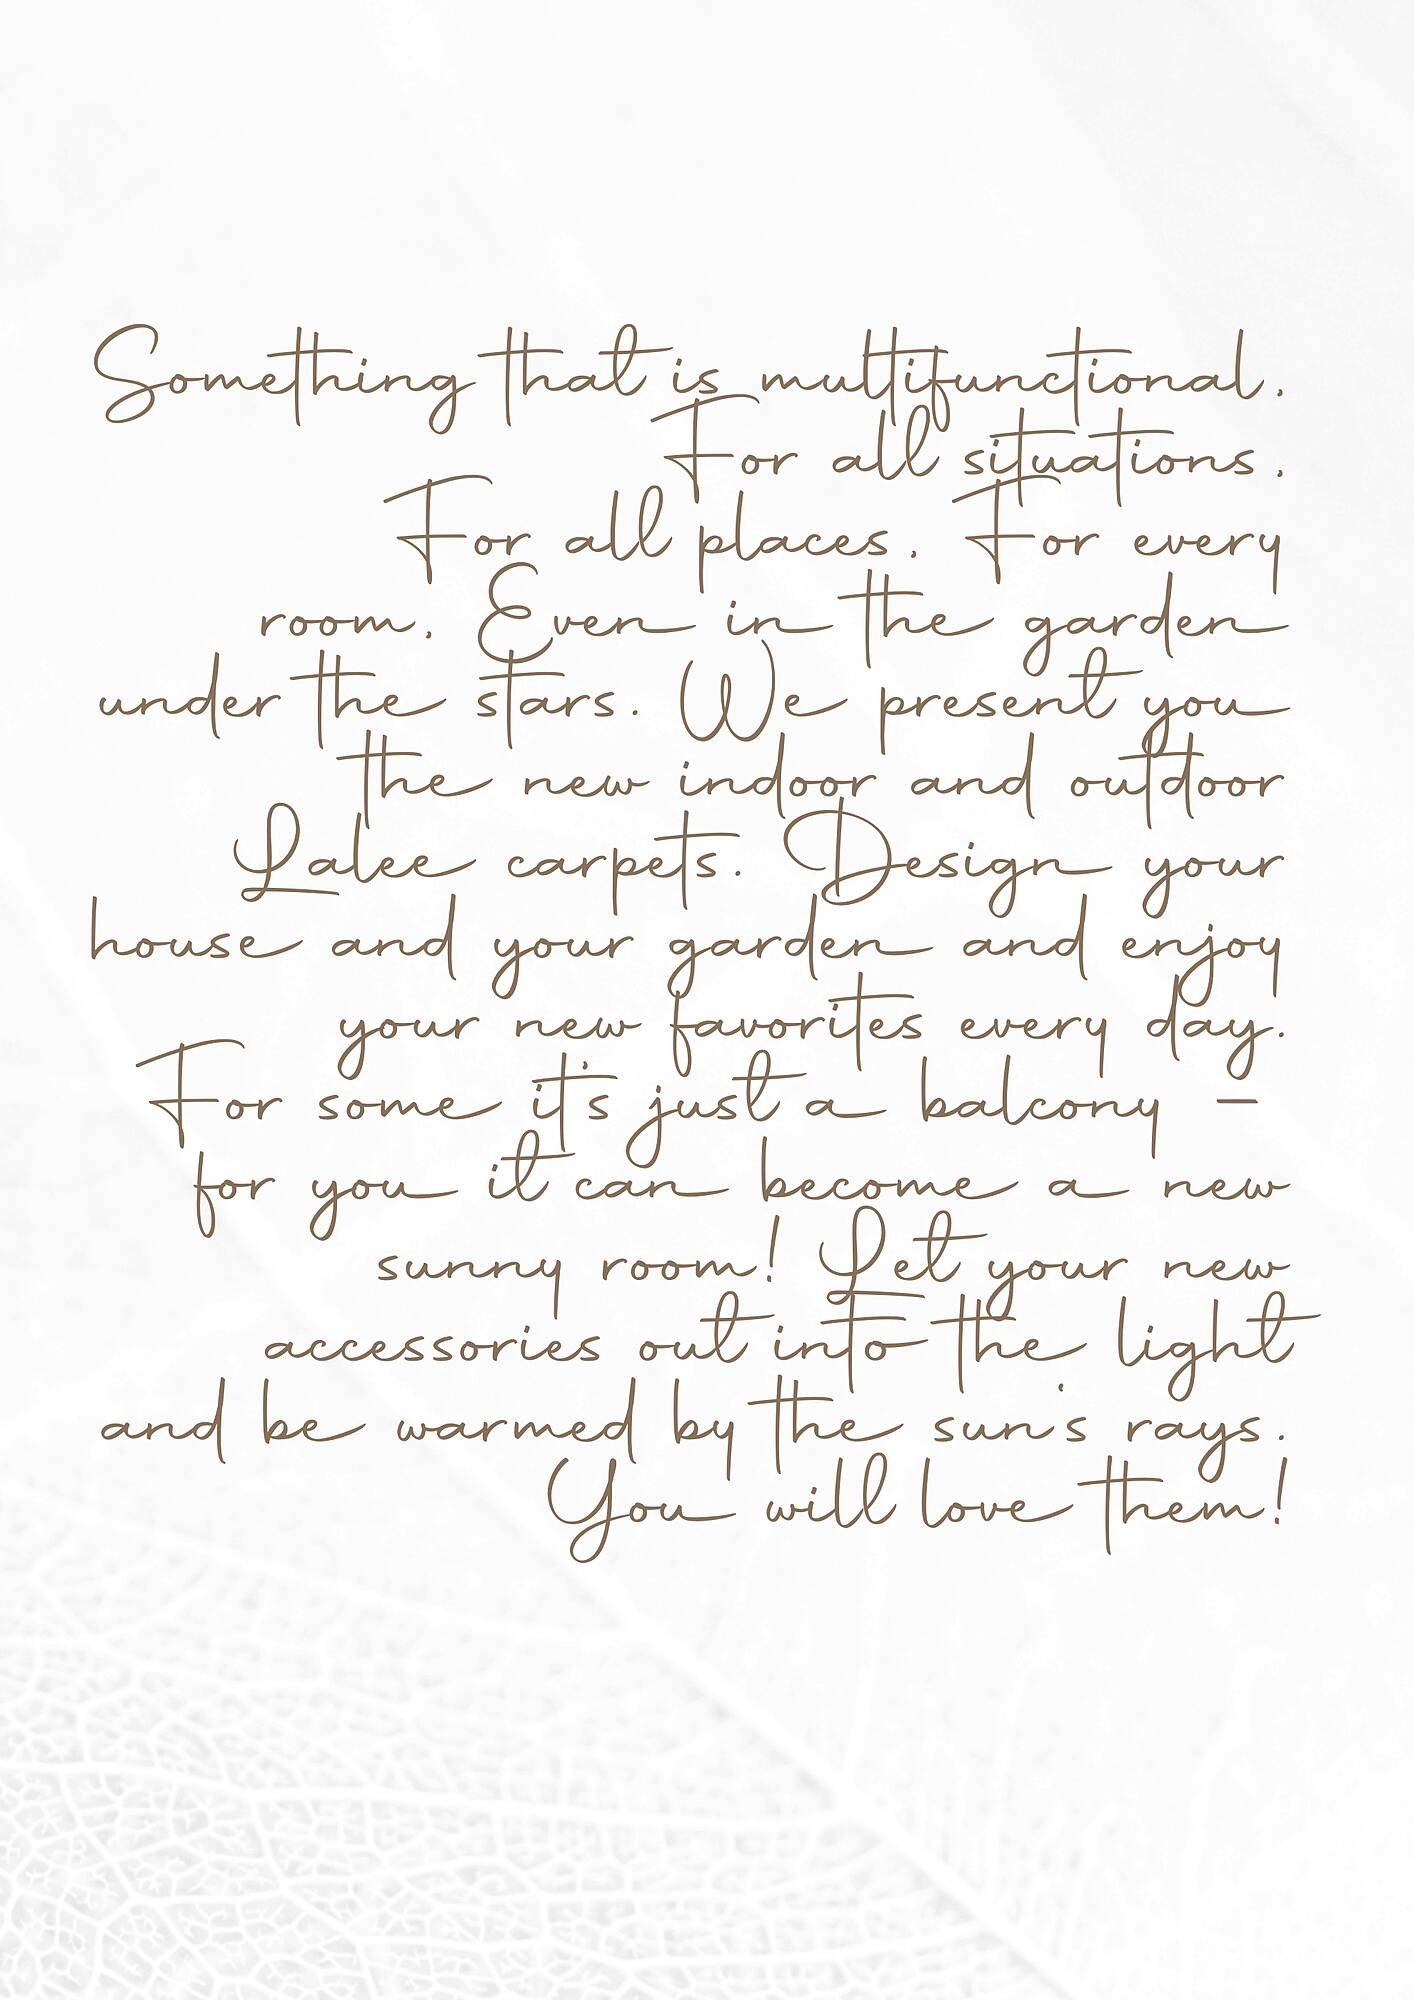 Something that is multifunctional.
For all situations.
For all places. For every
room. Even in the garden
under the stars. We present you
the new indoor and outdoor
Lalee carpets. Design your
house and your garden and enjoy
your new favorites every day.
For some it's just a balcony –
for you it can become a new
sunny room! Let your new
accessories out into the light
and be warmed by the sun's rays.
You will love them!